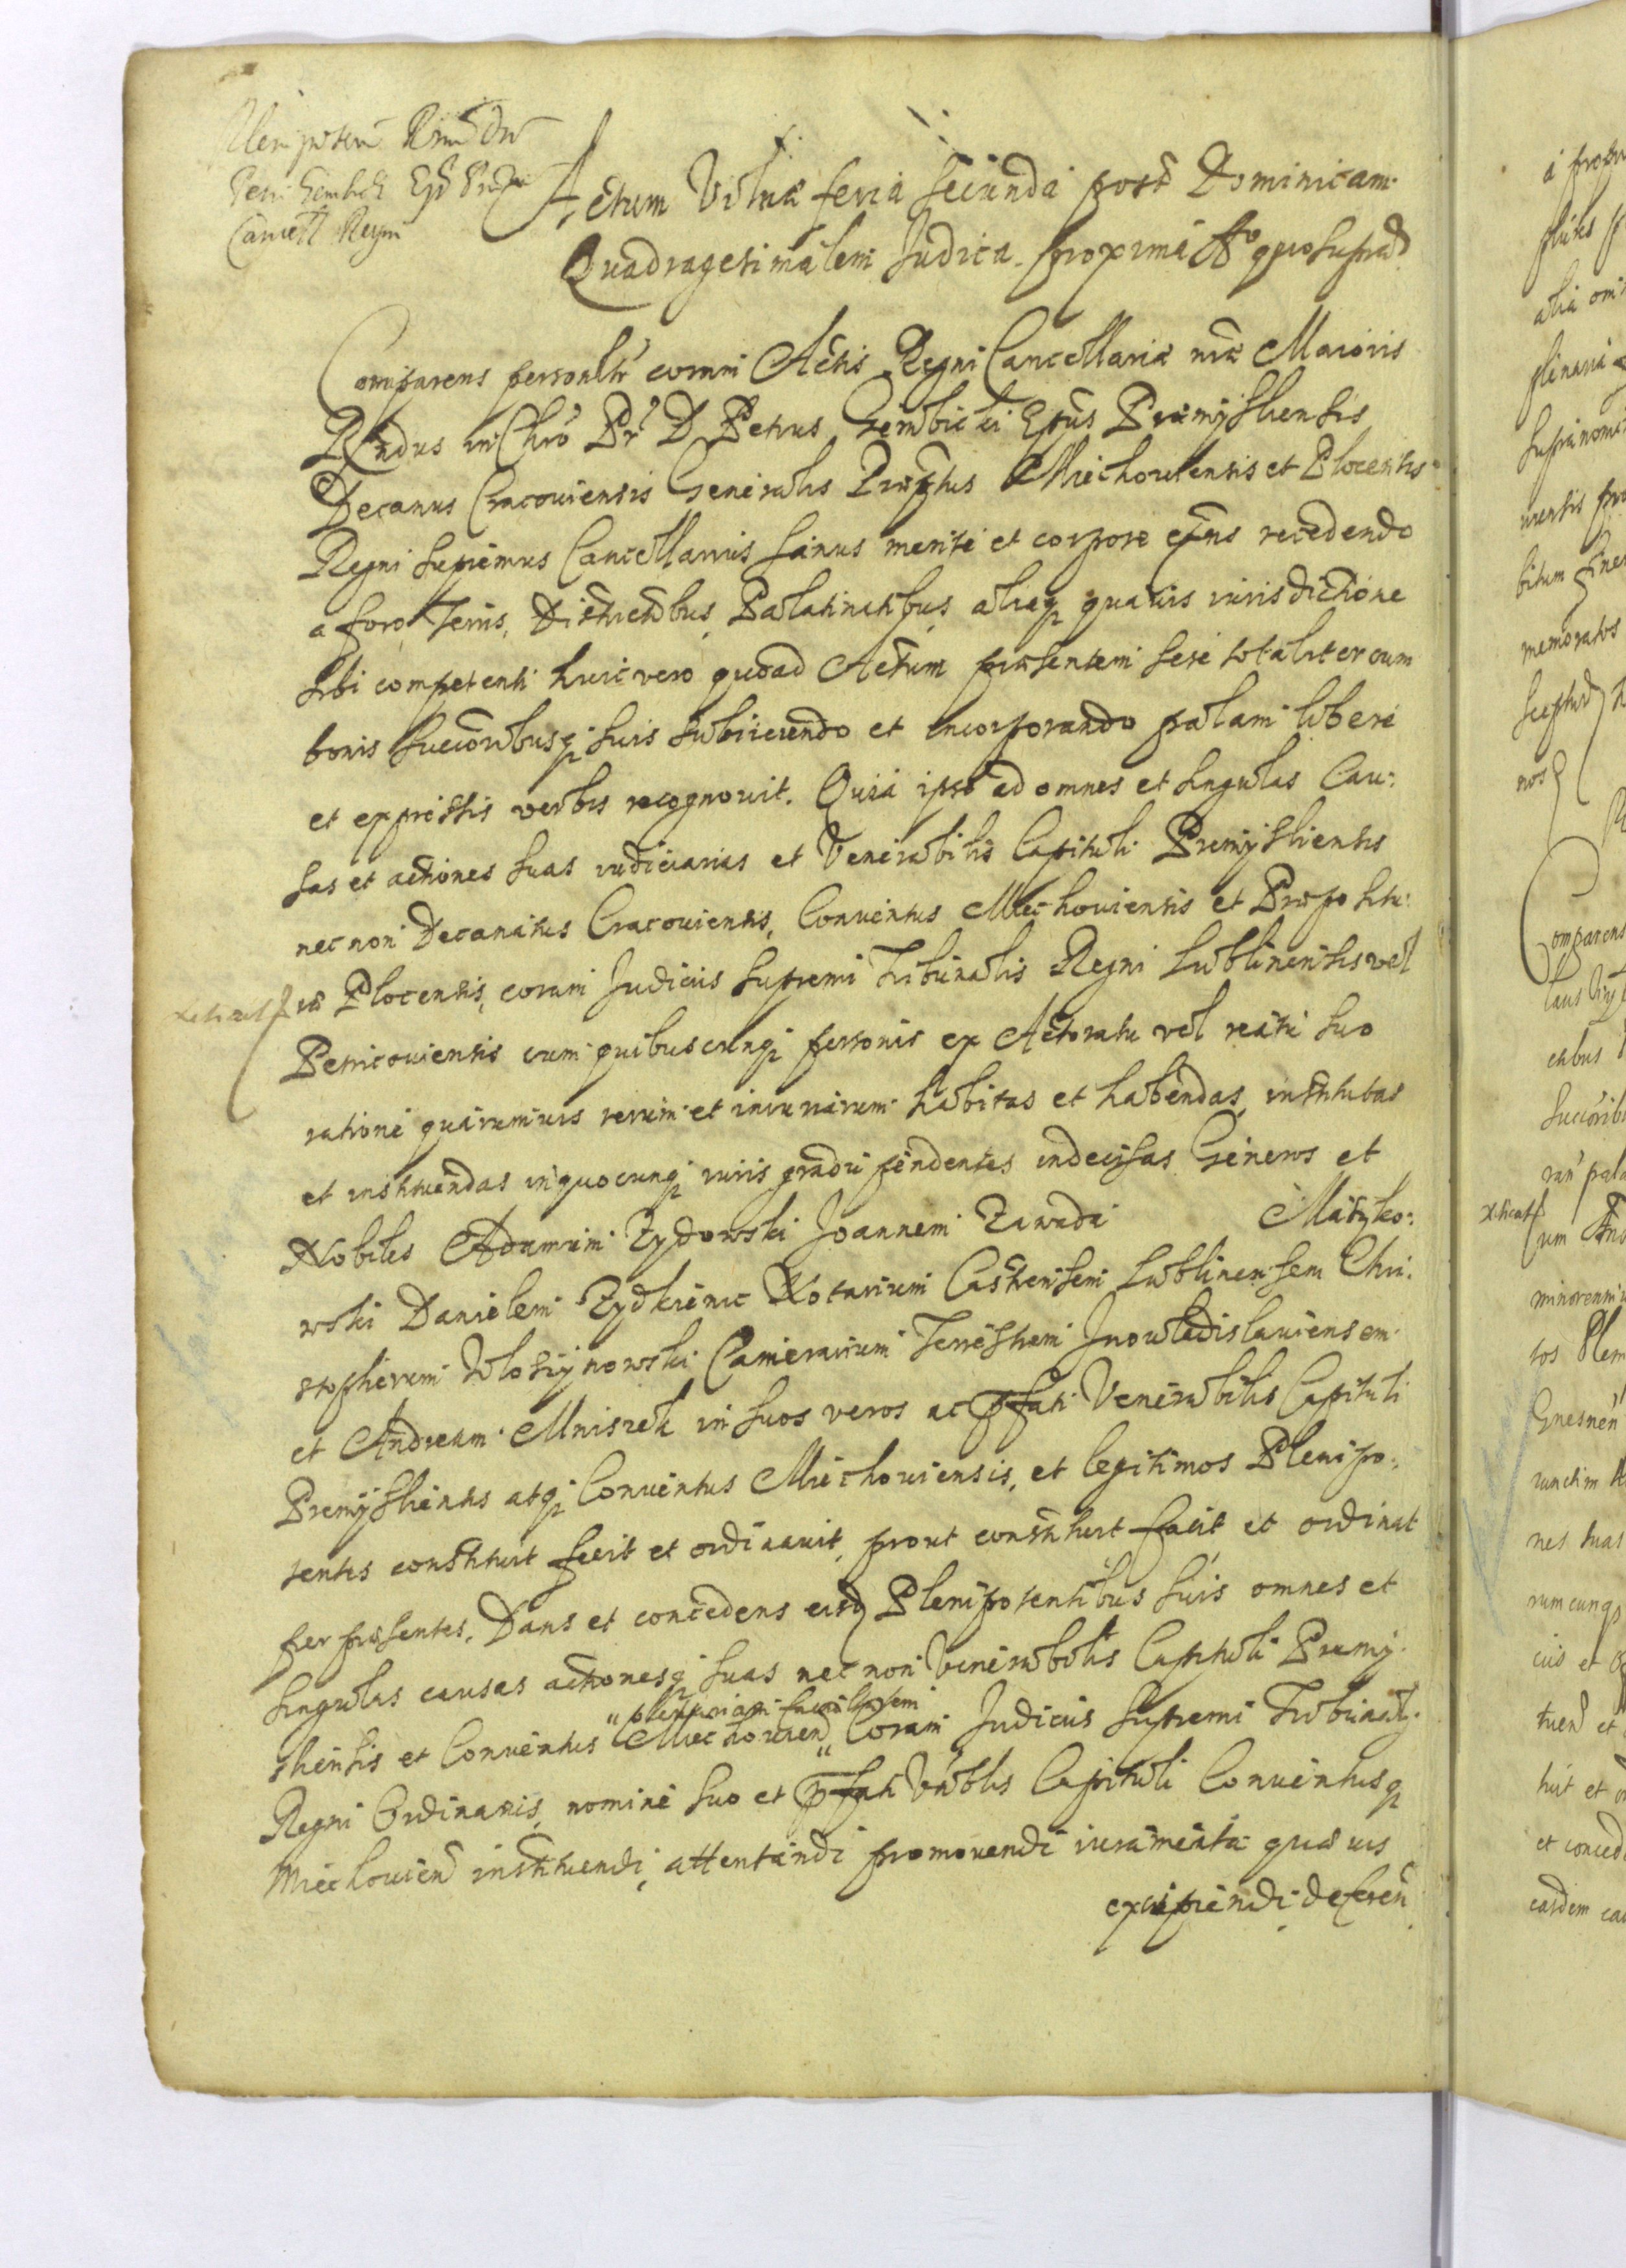 Plenipoten Rmi Dni
Petri Gembicki Epi Prem
Cancell Regni
Actum Vilnæ feria secunda post Dominicam
Quadragesimalem Judica proxima Ao quo suprad
Comparens personltr coram Actis Regni Cancellariæ nræ Maioris
Rndus in Chro Pr D Petrus Gembicki Epus Præmÿsliensis
Decanus Cracouiensis Generalis Præptus Miechouiensis et Plocensis
Regni supremus Cancellarius sanus mente et corpore exens recedendo
a foro Terris, Districtibus, Palatinatibus, aliaqꝫ quauis iurisdictione
sibi competenti huic vero quoad Actum præsentem sese totaliter cum
bonis succoribusqꝫ suis subiiciendo et incorporando palam libere
et expressis verbis recognouit. Quia ipse ad omnes et singulas Cau:
sas et actiones suas iudiciarias et Venerabilis Capituli Premÿsliensis
nec non Decanatus Cracouiensis, Conuentus Miechouiensis et Præposhu:
ræ Plocensis, coram Judiciis supremi Tribunalis Regni Lublinensis vel
Petricouiensis cum quibuscunqꝫ personis ex Actoratu vel reatu suo
ratione quarumuis rerum et iniuriarum habitas et habendas, institutas
et instituendas in quocunqꝫ iuris gradu pendentes indecisas Generos et
Nobiles Adamum Zydowski Joannem Zawada Matyko:
wski Danielem Zydkienic Notarium Castrensem Lublinensem Chri:
stopherum Wlosÿnowski Camerarium Terrestrem Jnowladislauiensem
et Andream Mniszek in suos veros ac pfati Venerabilis Capituli
Premÿsliensis atqꝫ Conuentus Miechouiensis, et legitimos Plenipo:
tentes constituit fecit et ordinauit, prout constituit facit et ordinat
per præsentes. Dans et concedens eisd Plenipotentibus suis omnes et
singulas causas actionesqꝫ suas nec non Venerabilis Capituli Premÿ:
sliensis et Conuentus Miechouien "plenariam facultatem" Coram Judiciis supremi Tribunal
Regni Ordinariis, nomine suo et pfati Vnblis Capituli Conuentusqꝫ
Miechouien instituendi, attentandi promouendi iuramenta quæuis
excipiendi deferen